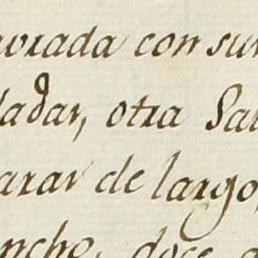 avrada con sun
ladar, otra Sal
arar de largo,
ncho, doce a